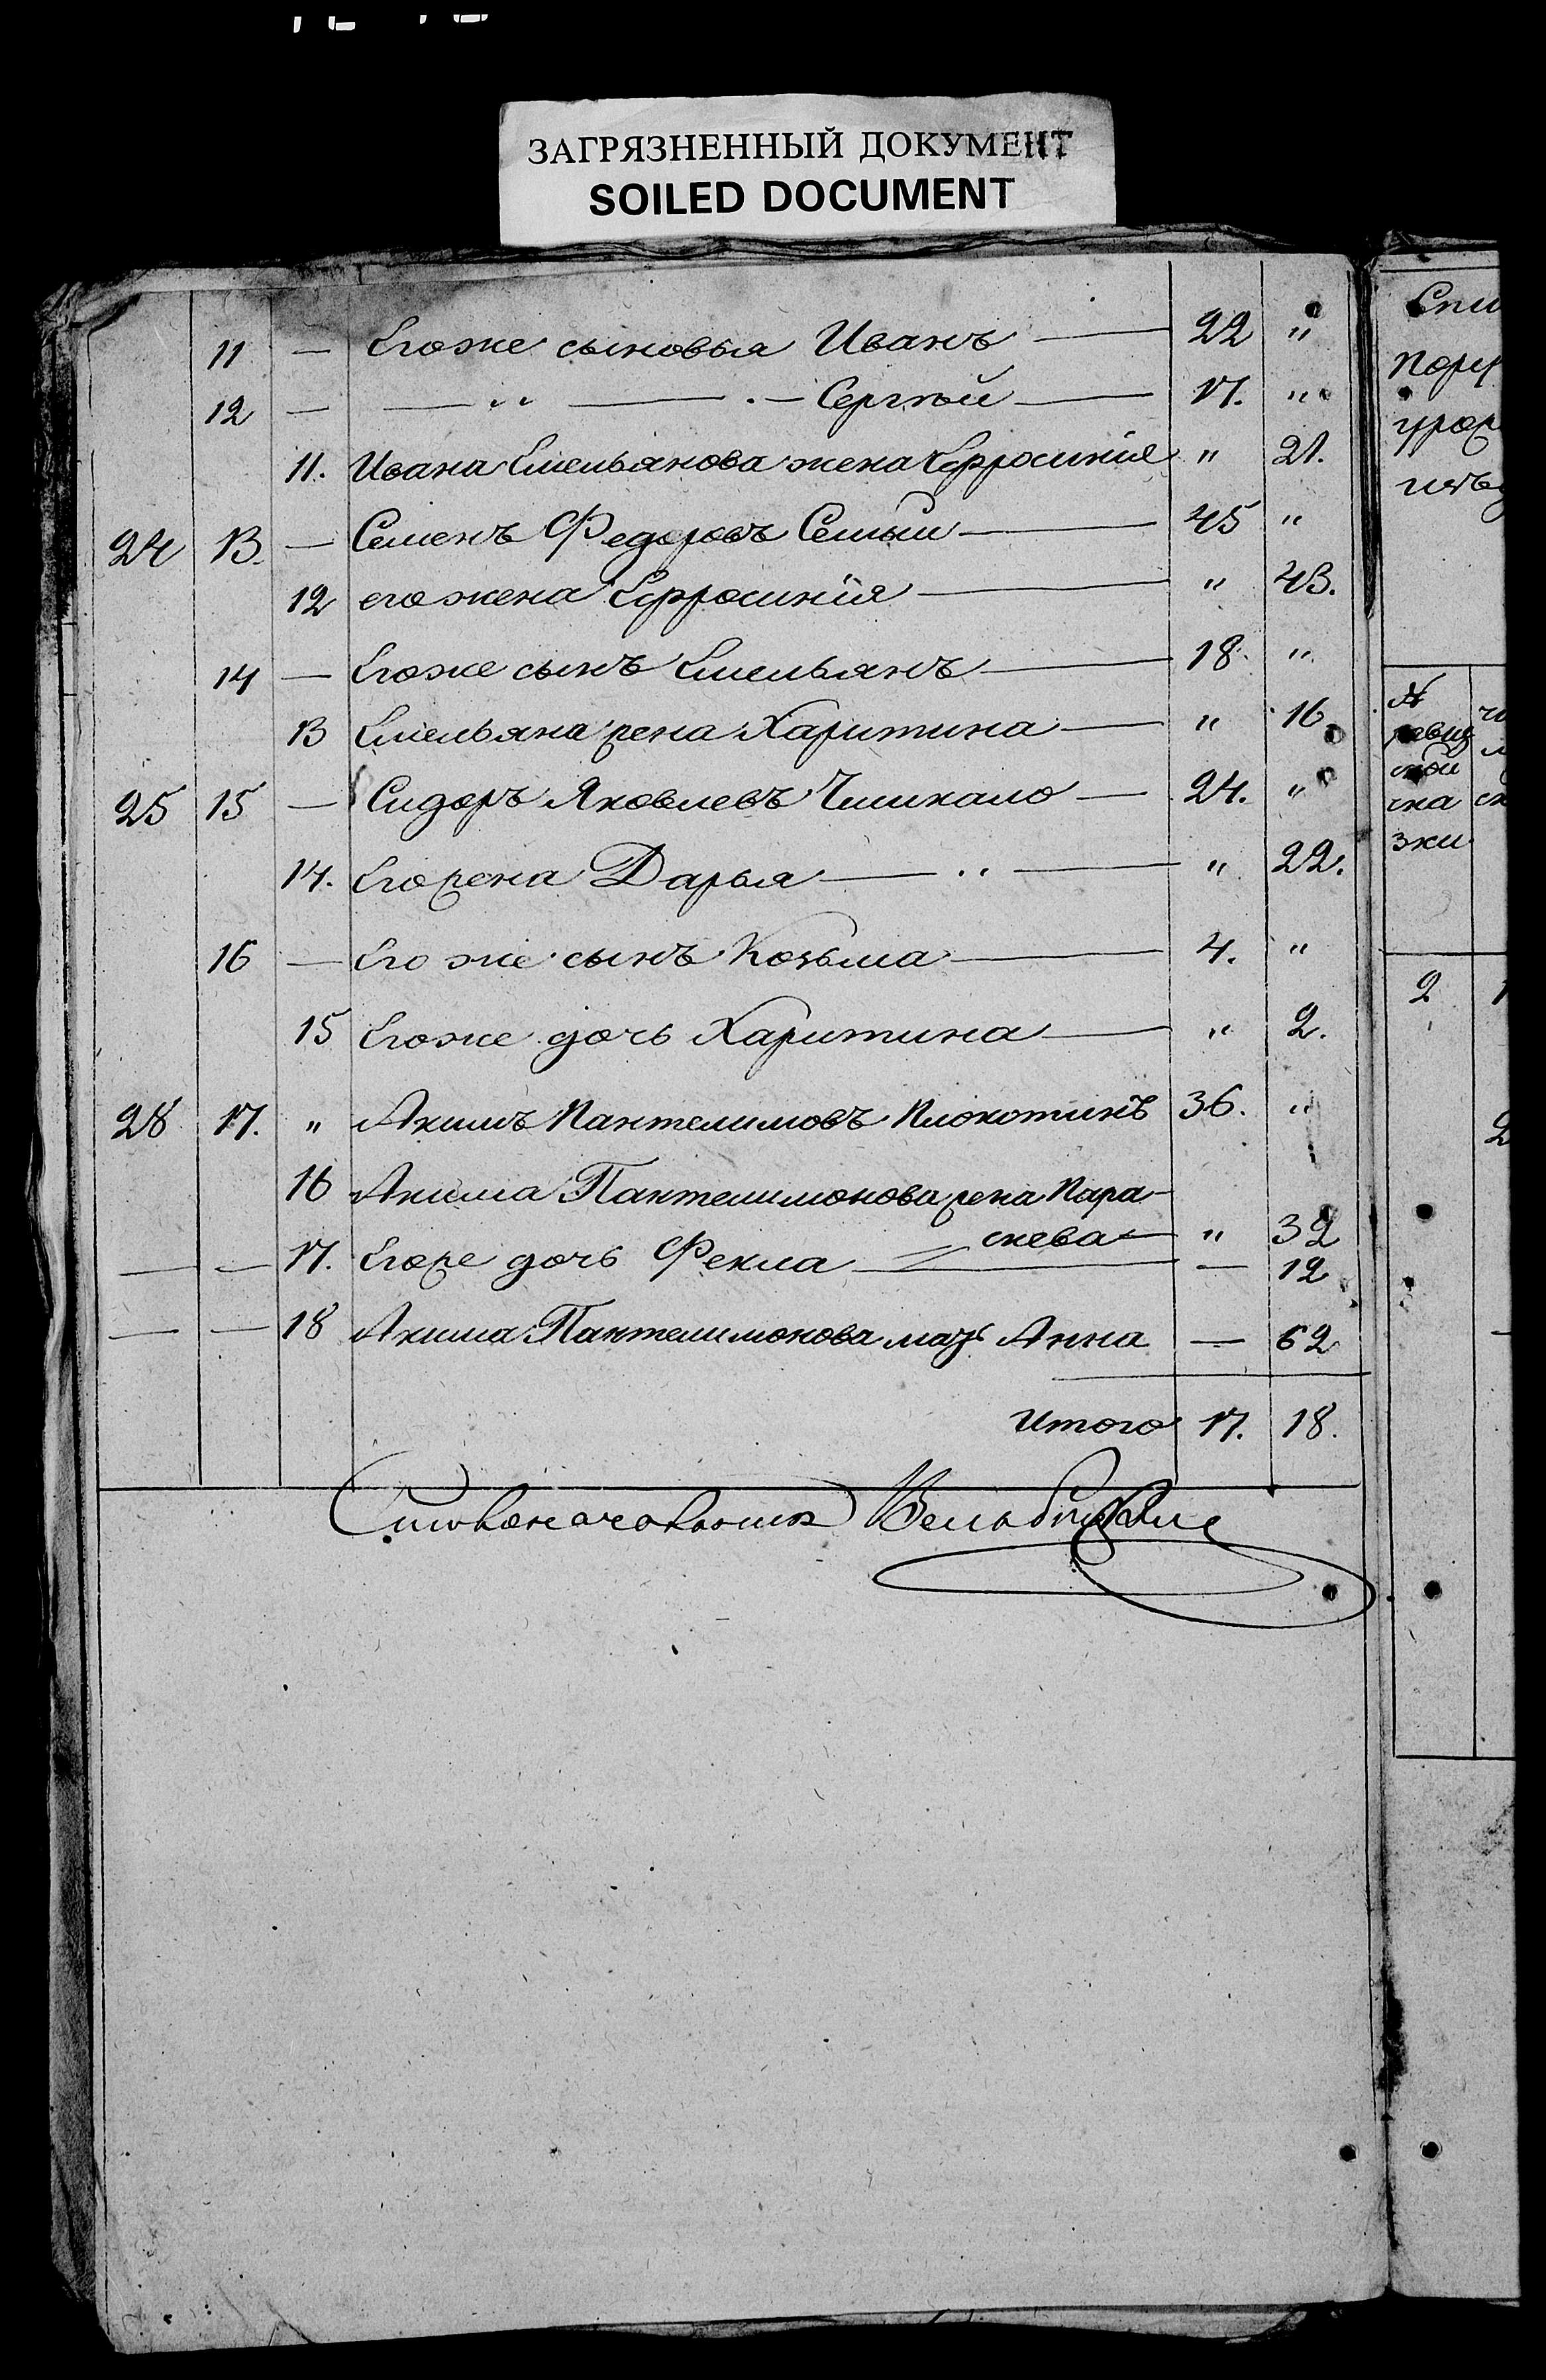 ЗАГРЯЗНЕННЫЙ ДОКУМЕНТ
SOILED DOCUMENT
11 — Егоже сыновья Иванъ — 22 "
12 — — " — Сергѣй — 17. "
11. Ивана Емельянова жена Ефросинія " 21.
24 13. — Семенъ Федоровъ Семый — 45 "
12 его жена Ефросинія — " 43.
14 — Егоже сынъ Емельянъ — 18. "
13 Емельяна жена Харитина — " 16.
25 15 — Сидоръ Яковлевъ Чмикало — 24. "
14. Его жена Дарья — " — " 22.
16 — Его же сынъ Козьма — 4. "
15 Егоже дочь Харитина — " 2.
28 17. " Акимъ Пантелимовъ Плохотинъ 36. "
16 Акима Пантелимонова жена Пара-
скева — " 32
— — 17. Егоже дочь Фекла — — 12
— — 18 Акима Пантелимонова мать Анна — 62
Итого 17. 18.
Спи
2